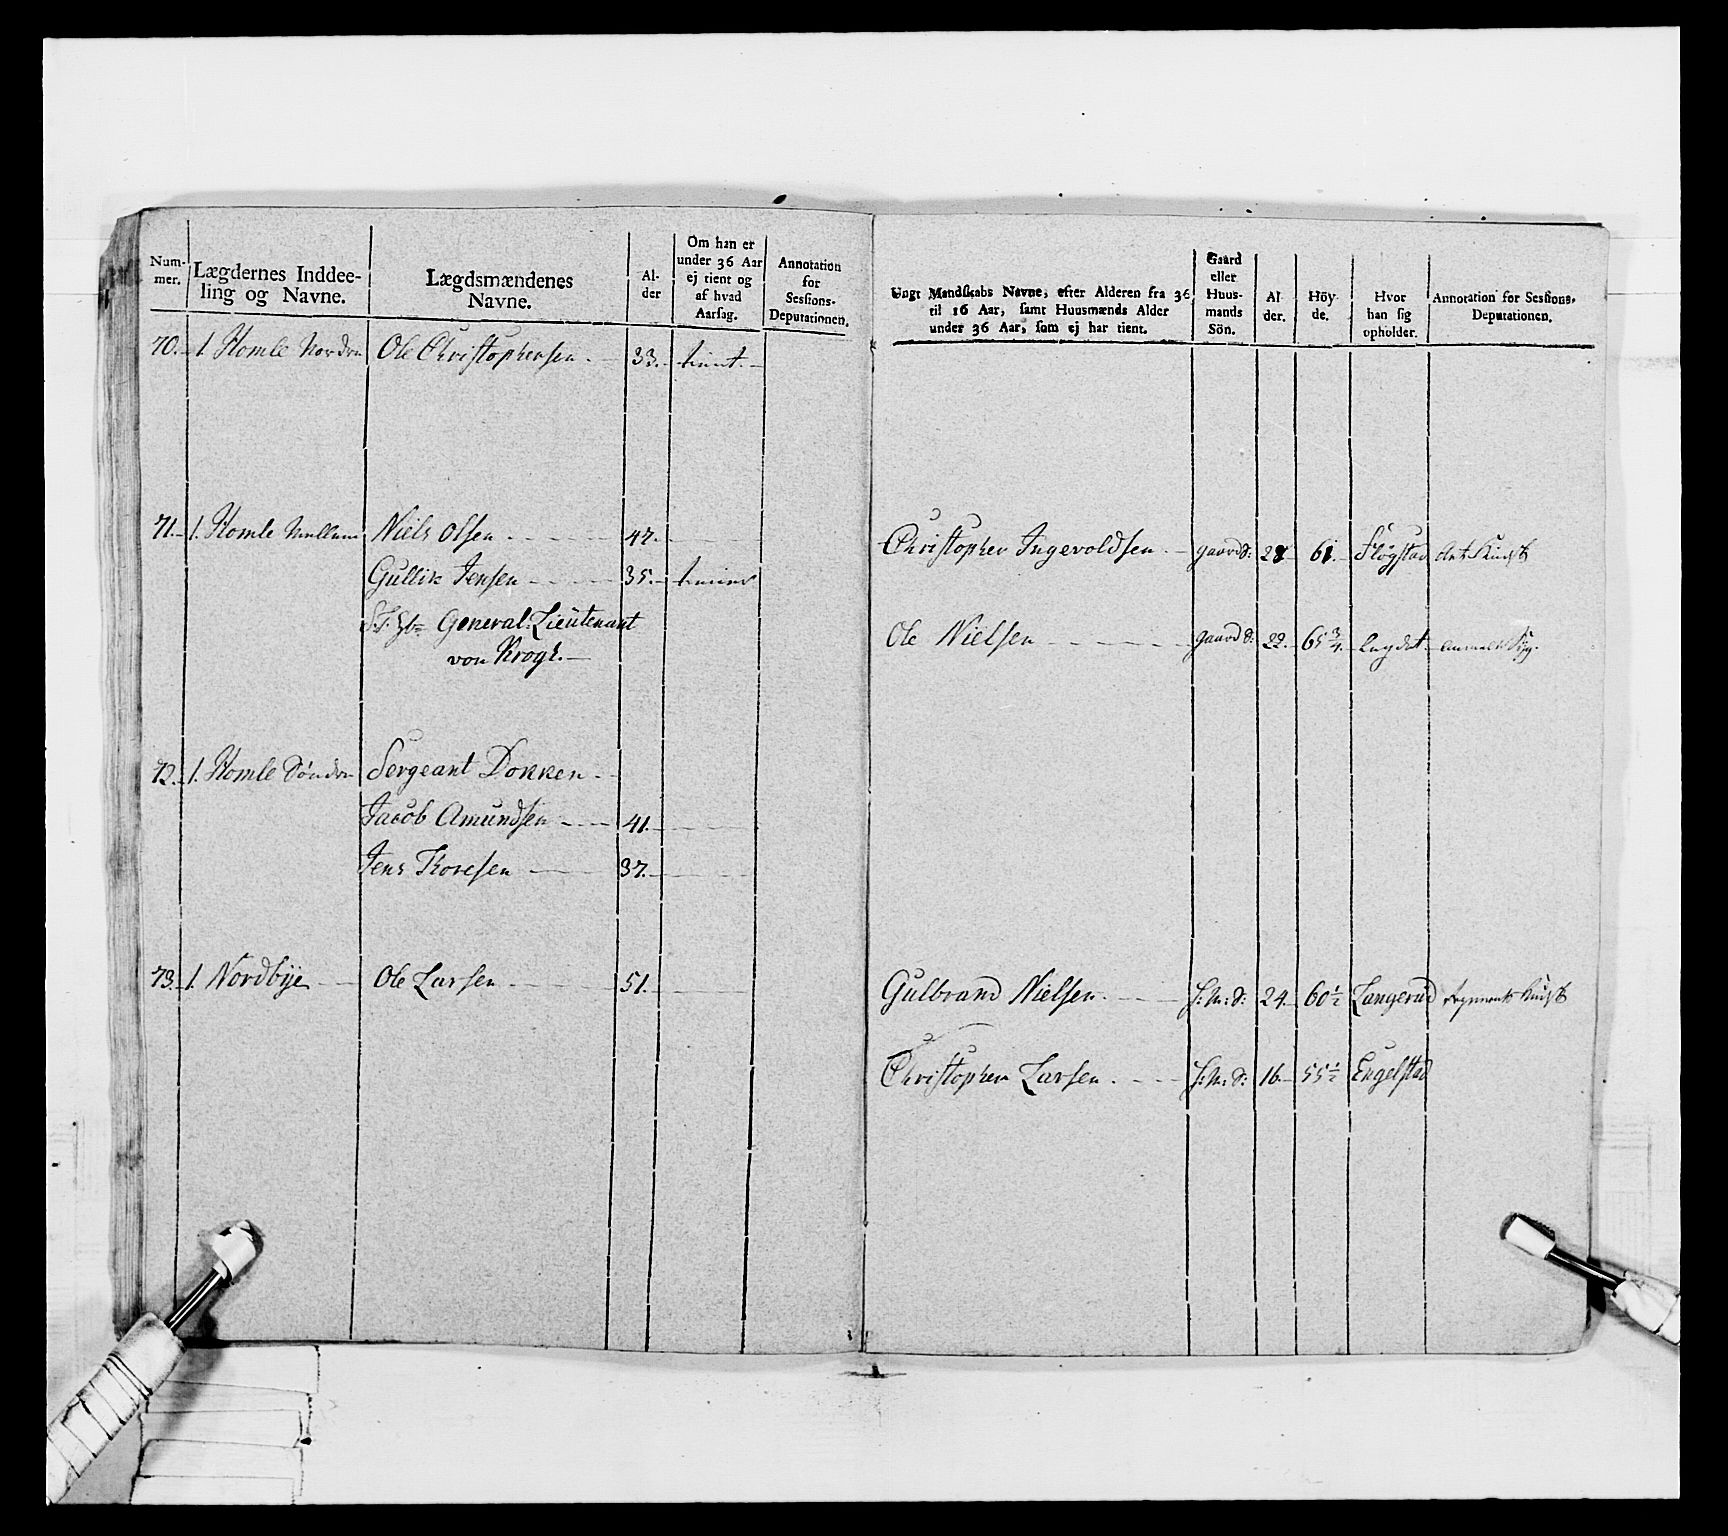 Num-
mer.
Lægdernes Inddee-
ling og Navne.
Lægdsmændenes
Navne.
Al-
der
Om han er
under 36 Aar
ej tient og
af hvad
Aarsag.
Annotation
for
Sessions-
Deputationen.
70. 1. Homle Nordre Ole Christophersen. 33. tient.
71. 1. Homle Mellem Niels Olsen 47.
Gullik Jensen 35. tiener
General-Lieutenant
von Krogh.
72. 1. Homle Søndre Sergeant Dokken.
Jacob Amundsen 41.
Jens Thoresen 37.
73. 1. Nordbye Ole Larsen 51.
Ungt Mandskabs Navne, efter Alderen fra 36
til 16 Aar, samt Huusmænds Alder
under 36 Aar, som ej har tient.
Gaard
eller
Huus-
mands
Sön.
Al
der.
Höy-
de.
Hvor
han sig
opholder.
Annotation for Sessions-
Deputationen.
Christopher Ingevoldsen. gaard S: 28 61. Fløgstad
Ole Nielsen gaard S: 22. 65 3/4. Lægdet
Gulbrand Nielsen. H: M: S: 24 60 1/2 Langerud Regiments
Christopher Larsen. H: M: S: 16. 55 1/2 Engelstad